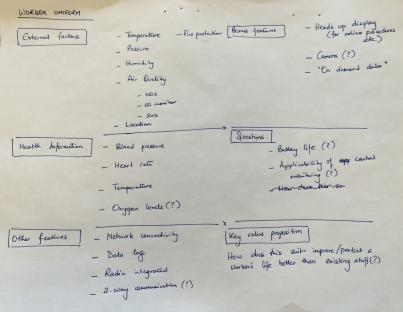 WORKER UNIFORM
External factors
- Temperature - Fire protection
- Pressure
- Humidity
- Air Quality
- NOX
- CO monitor
- SOX
- Location
Bonus features
- Heads up display
(for online procedures
etc.)
- Camera (?)
- "On demand data"
Health Information
- Blood pressure
- Heart rate
- Temperature
- Oxygen levels (?)
Questions
- Battery life (?)
- Applicability of central
monitoring (?)
Other features
- Network connectivity
- Data log
- Radio integrated
- 2-way communication (?)
Key value proposition
How does this suit improve/protect a
worker's life better than existing stuff(?)